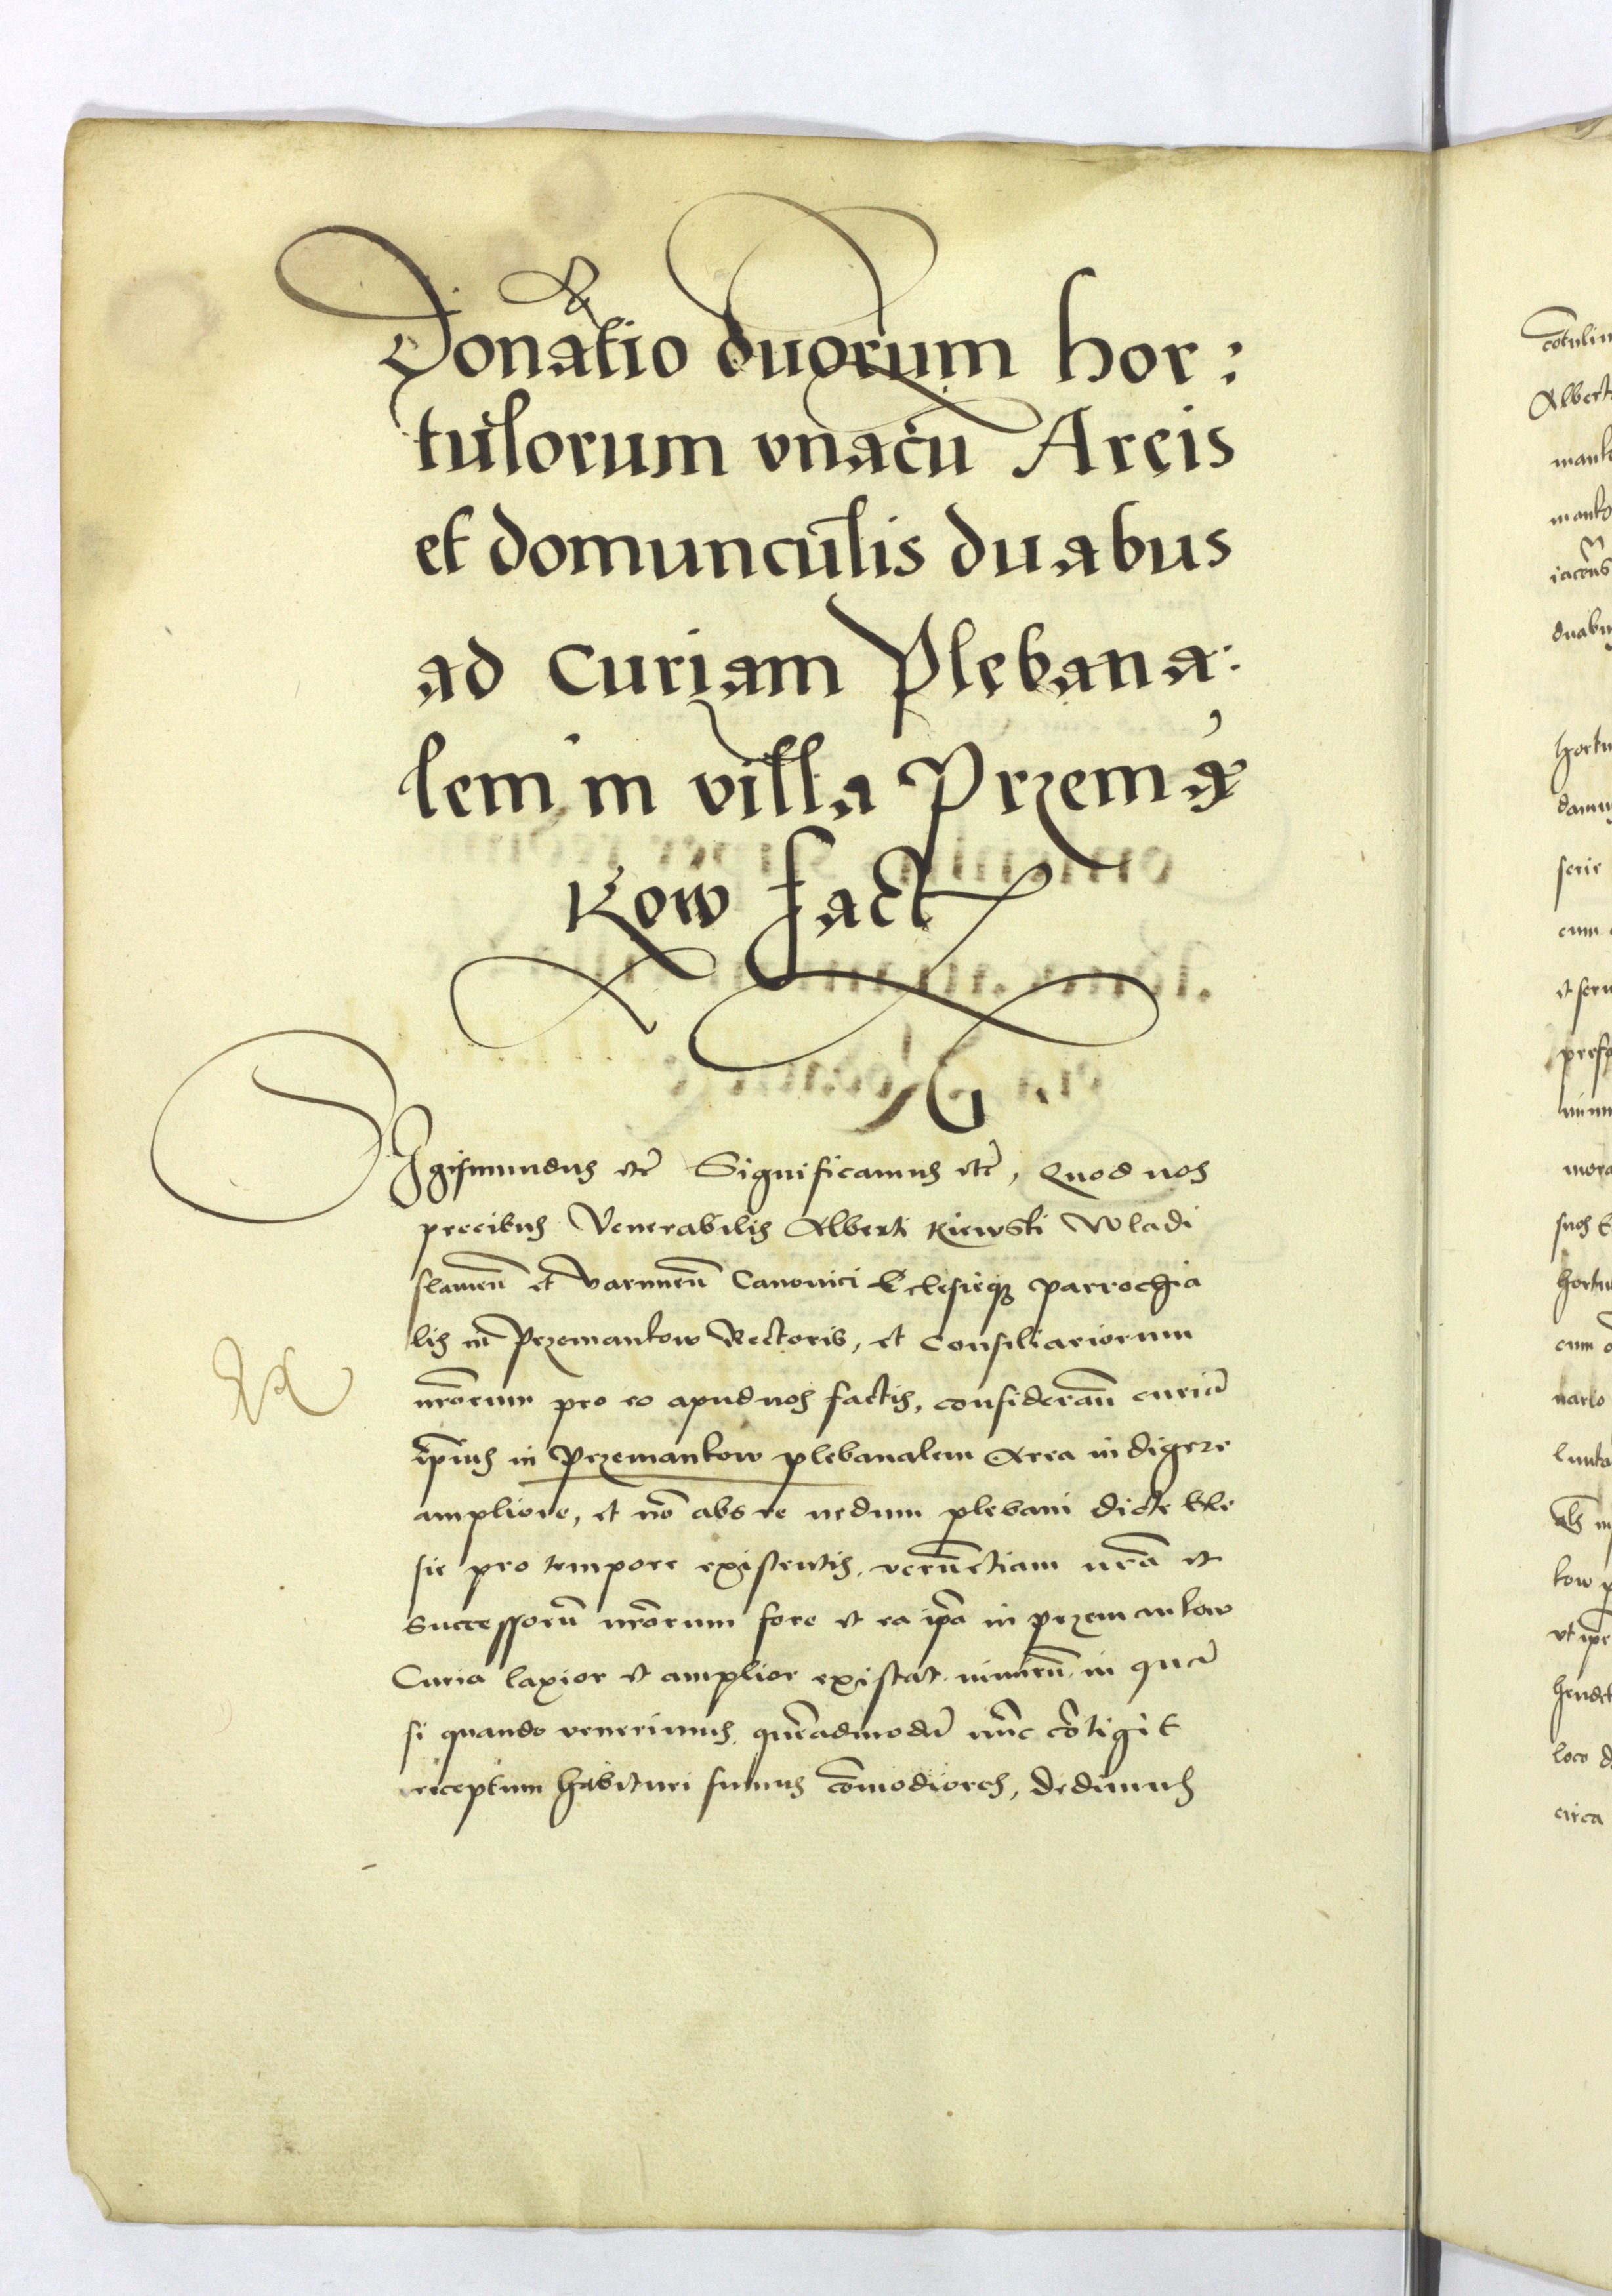 Donatio duorum hor:
tulorum vnacū Areis
et domunculis duabus
ad Curiam Plebana:
lem in villa Przemą
kow fact
Sigismundus etc̄ Significamus etc̄, Quod nos
precibus Venerabilis Alberti Kiewski Wladi
slauieñ et Varmieñ Canonici Eclesieq₃ parrochia
lis in Przemankow Rectoris, et Consiliariorum
nr̄orum pro eo apud nos factis, considerañ curiā
ip̄ius in Przemankow plebanalem Area indigere
ampliore, et nō abs re nedum plebani dicte Ecle
sie pro tempore existentis, verūetiam nr̄a et
Successorū nr̄orum fore vt ea ip̄a in przemankow
Curia laxior et amplior existat nimirū in quā
si quando venerimus, quēadmodū nūc cōtigit
receptum habituri sumus cōmodiores, dedimus
cōtulim
Albert
mank
manko
iacens
duabu
hortu
damu
serie
cum
et seru
presp
mora
suos
hortu
cum
kow p
vt ip̄e
loco d
circa